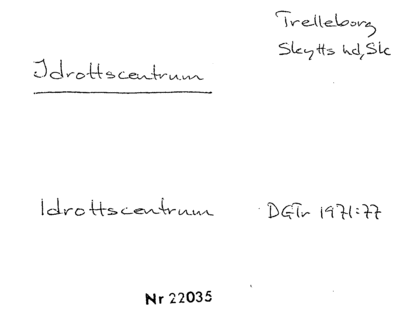 Trelleborg
Skytts hd, Sk
Idrottscentrum
Idrottscentrum DGTr 1971:77
Nr 22035